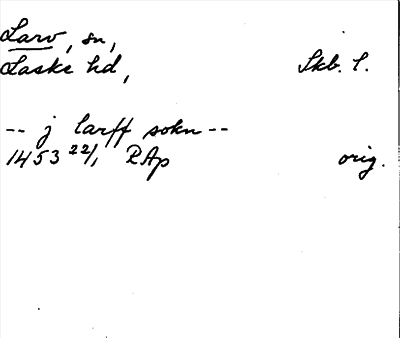 Larv, sn,
Laske hd, Skb. l.
-- j larff sokn --
1453 22/1 RAp orig.